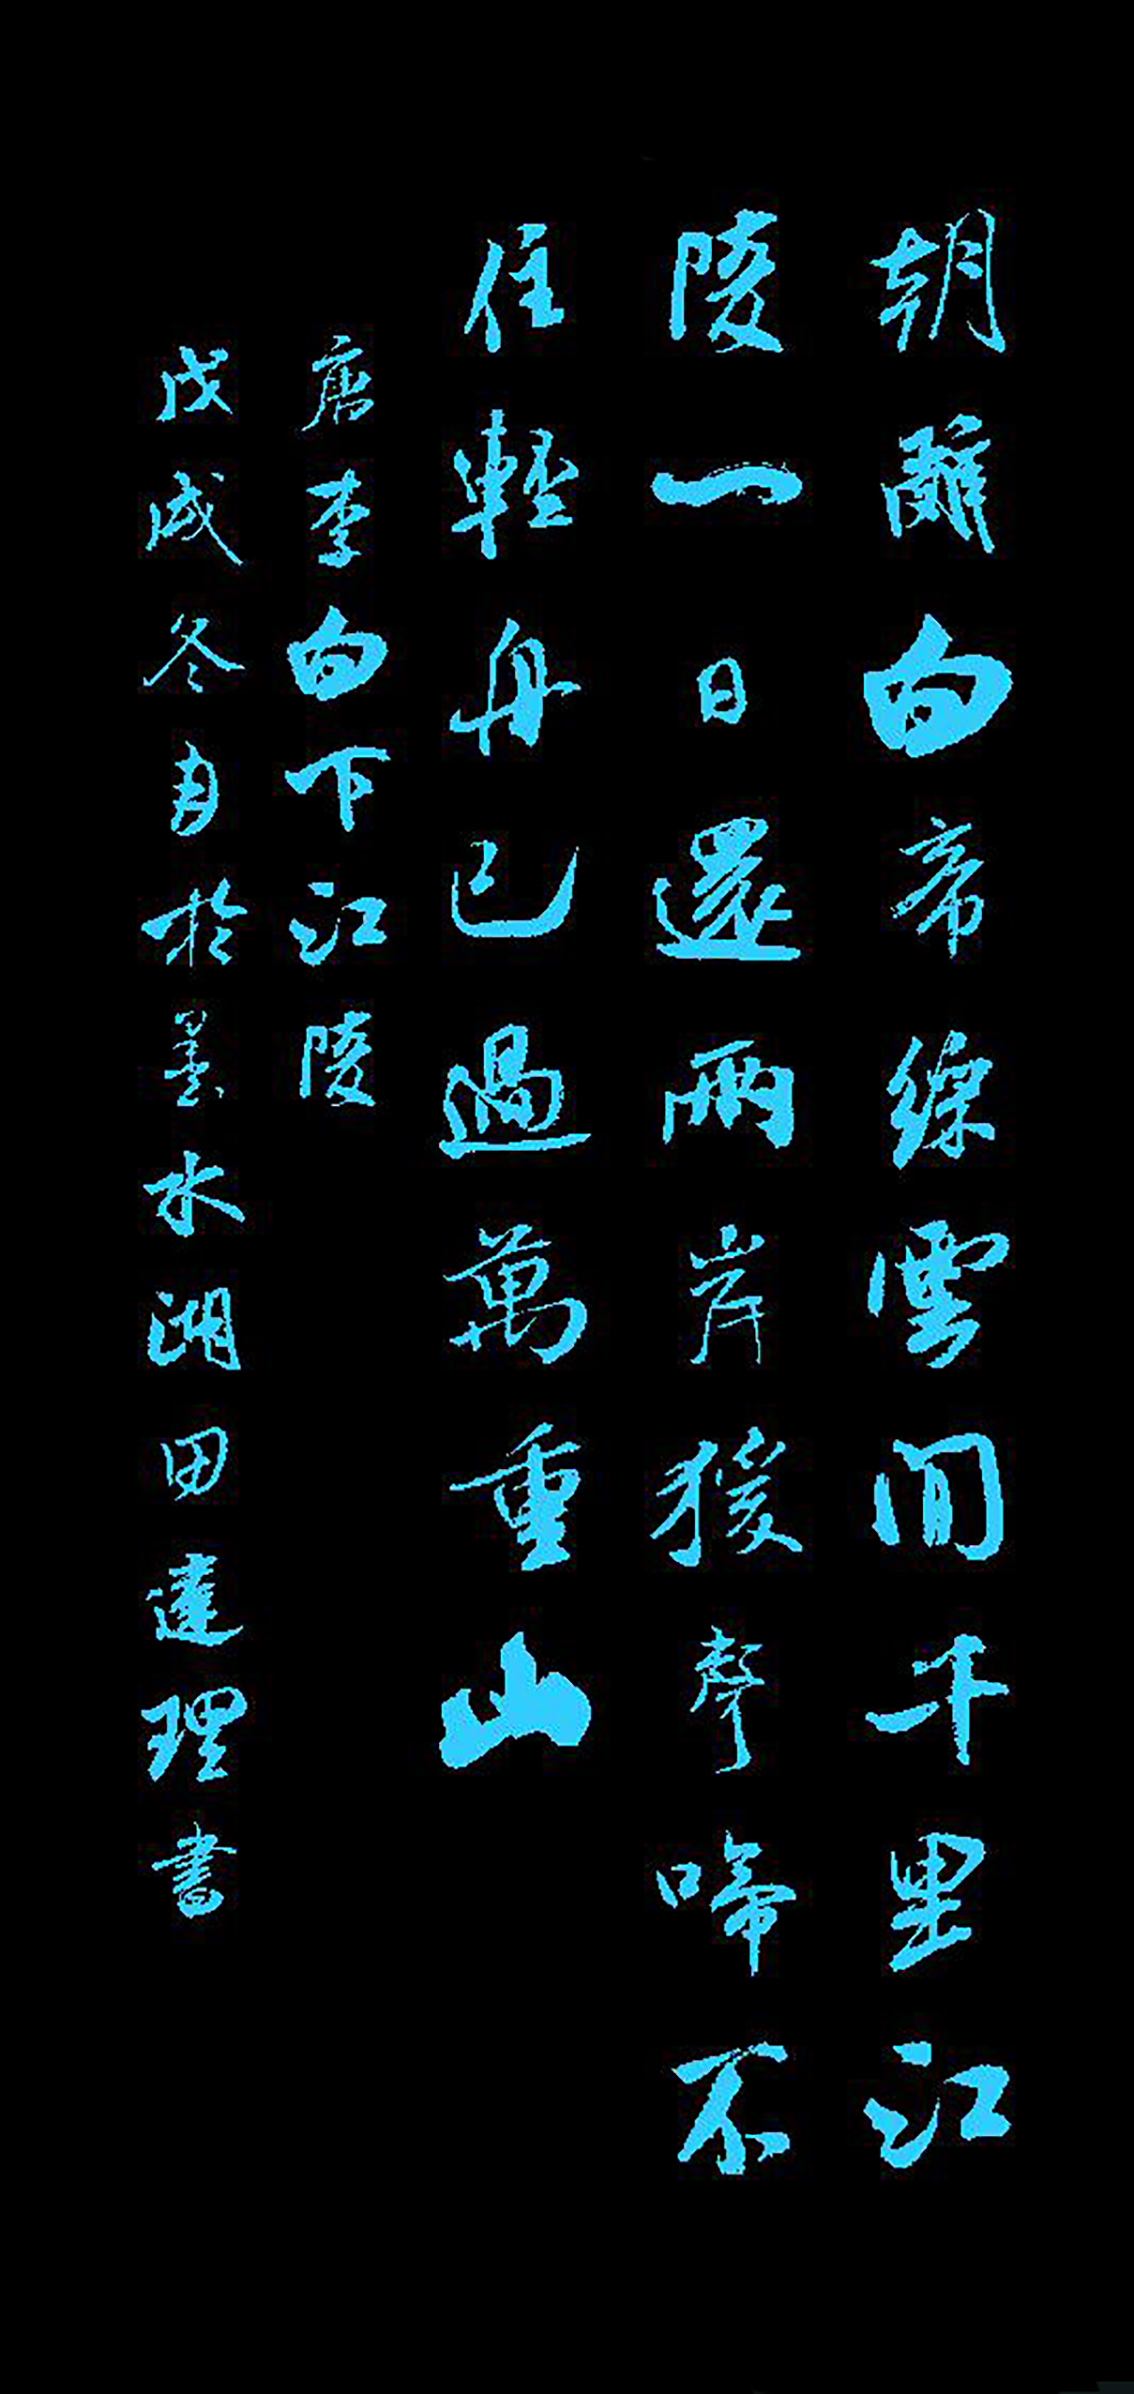 朝辭白帝綵雲間千里江
陵一日還兩岸猨聲啼不
住輕舟已過萬重山
唐李白下江陵
戊成冬月於墨水湖田達理書